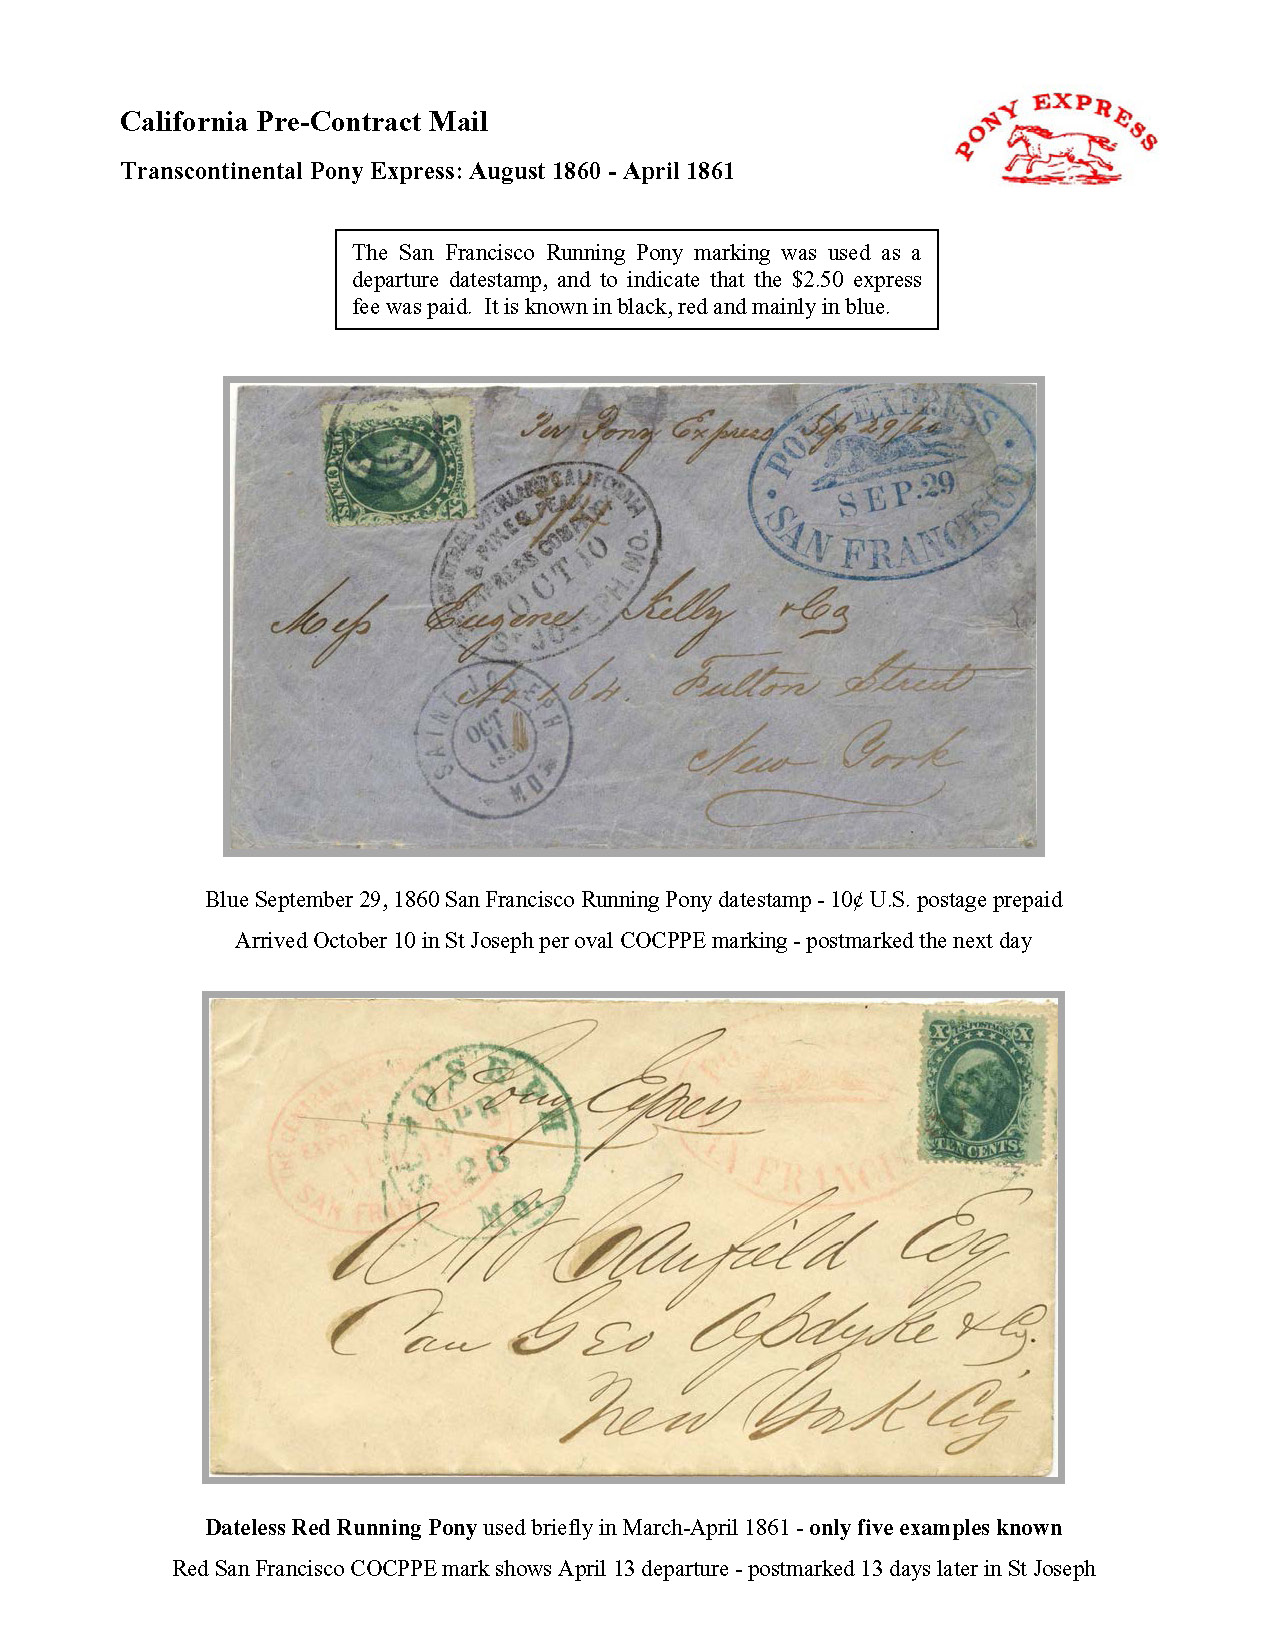 California Pre-Contract Mail
PONY EXPRESS
Transcontinental Pony Express: August 1860 - April 1861
The San Francisco Running Pony marking was used as a
departure datestamp, and to indicate that the $2.50 express
fee was paid. It is known in black, red and mainly in blue.
Per Pony Express Sep 29/60
PONY EXPRESS
SEP. 29
SAN FRANCISCO
TEN CENTS
CENTRAL OVERLAND CALIFORNIA
& PIKES PEAK
EXPRESS COMPANY
OCT 10
ST JOSEPH. MO.
Mess Eugene Kelly & Co
No 164. Fulton Street
New York
SAINT JOSEPH
OCT
11
MO
Blue September 29, 1860 San Francisco Running Pony datestamp - 10¢ U.S. postage prepaid
Arrived October 10 in St Joseph per oval COCPPE marking - postmarked the next day
Pony Express
U.S. POSTAGE
X X
TEN CENTS
THE CENTRAL
SAN FRANCISCO
ST JOSEPH
APR
26
MO.
SAN FRANCISCO
Canfield Esq
Care Geo Opdyke & Co.
New York City
Dateless Red Running Pony used briefly in March-April 1861 - only five examples known
Red San Francisco COCPPE mark shows April 13 departure - postmarked 13 days later in St Joseph